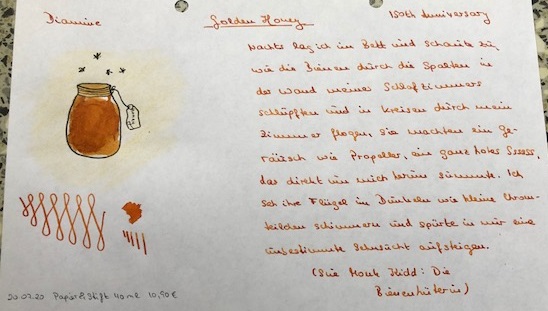 Diamine
Golden Honey
150th Anniversary
Nachts lag ich im Bett und schaute zu,
wie die Bienen durch die Spalten in
der Wand meines Schlafzimmers
schlüpften und in Kreisen durch mein
Zimmer flogen. Sie machten ein Ge-
räusch wie Propeller, ein ganz hohes Sssss,
das direkt um mich herum summte. Ich
sah ihre Flügel im Dunkeln wie kleine Chrom-
teilchen schimmern und spürte in mir eine
unbestimmte Sehnsucht aufsteigen.
(Sue Monk Kidd: Die
Bienenhüterin)
20.07.20 Papier & Stift 40 ml 10,50 €